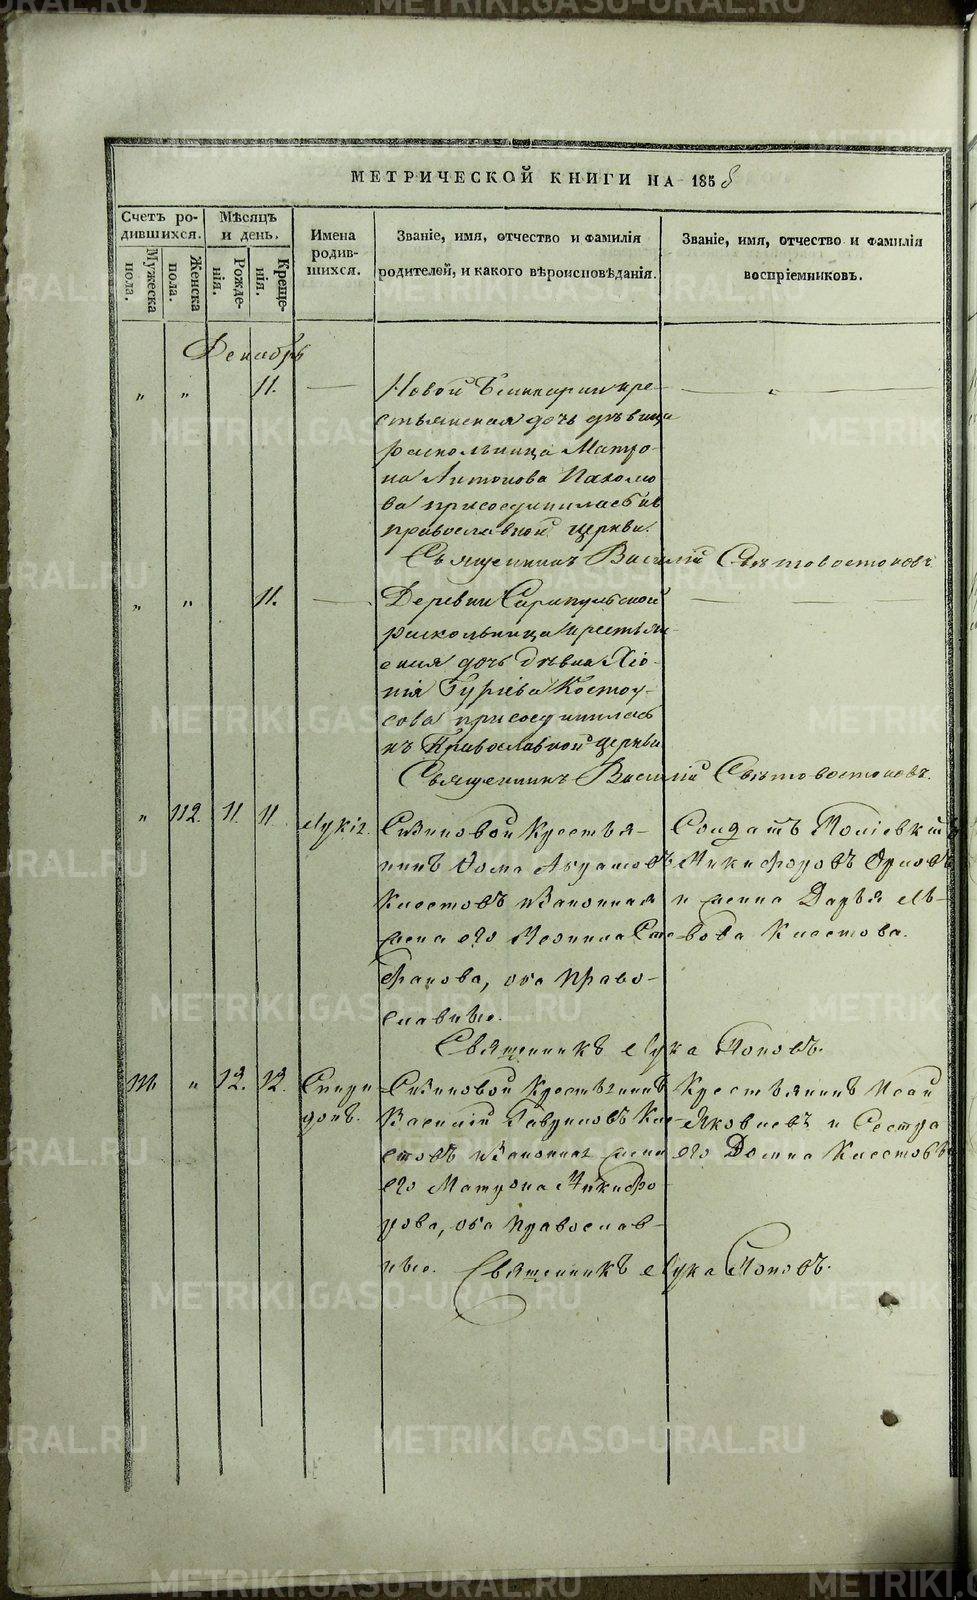 METRIKI.GASO-URAL.RU
МЕТРИЧЕСКОЙ КНИГИ НА 1858
Счетъ ро-
дившихся.
Мужеска пола.
Женска пола.
Мѣсяцъ
и день.
Рожде-
нія.
Креще-
нія.
Имена
родив-
шихся.
Званіе, имя, отчество и фамилія
родителей, и какого вѣроисповѣданія.
Званіе, имя, отчество и фамилія
воспріемниковъ.
Декабрь
" " 11. — Новой кре-
стьянская дочь дѣвица
раскольница Матро-
на Антонова
ва присоединилась къ
православной церкви.
Священникъ Василій Свѣтовостоковъ
" " 11. — Деревни Сарапульской
раскольница крестьян-
ская дочь дѣвка Хіо-
нія Гуріева Костоу-
сова присоединилась
къ Православной церкви
Священникъ Василій Свѣтовостоковъ.
" 112. 11. 11. Лукія. Сизиковой Крестья-
нинъ Ѳома Клестовъ и Законная
жена его Сте-
фанова, оба Право-
славные.
Солдатъ
Никифоровъ Орловъ
и жена Дарья Ль-
вова Клестова.
Священникъ Лука Поповъ.
111. " 12. 12. Спири-
донъ.
Сизиковой Крестьянинъ
Василій Гавриловъ Кле-
стовъ и Законная жена
его Матрона Никифо-
рова, оба Православ-
ные.
Крестьянинъ Исай
Яковлевъ и Сестра
его Домна Клестовы
Священникъ Лука Поповъ.